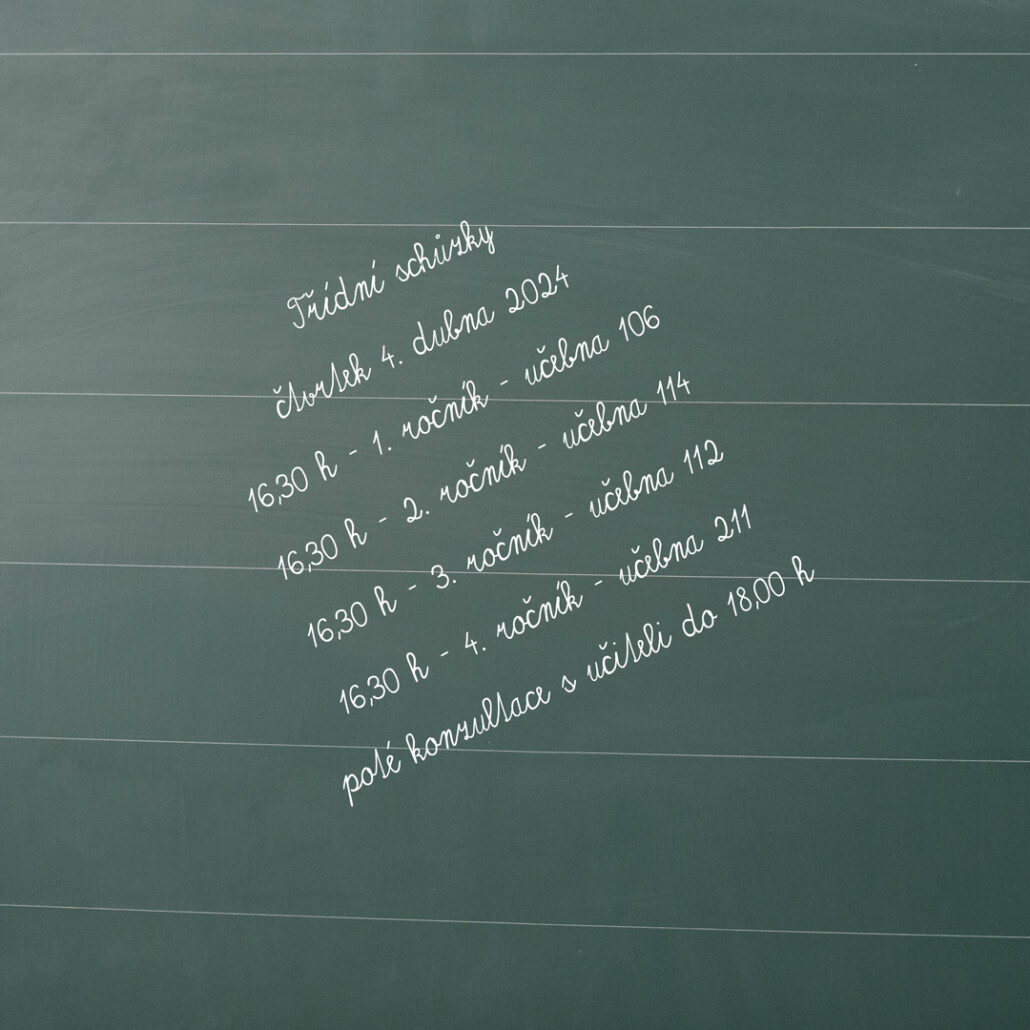 Třídní schůzky
čtvrtek 4. dubna 2024
16,30 h - 1. ročník - učebna 106
16,30 h - 2. ročník - učebna 114
16,30 h - 3. ročník - učebna 112
16,30 h - 4. ročník - učebna 211
poté konzultace s učiteli do 18,00 h